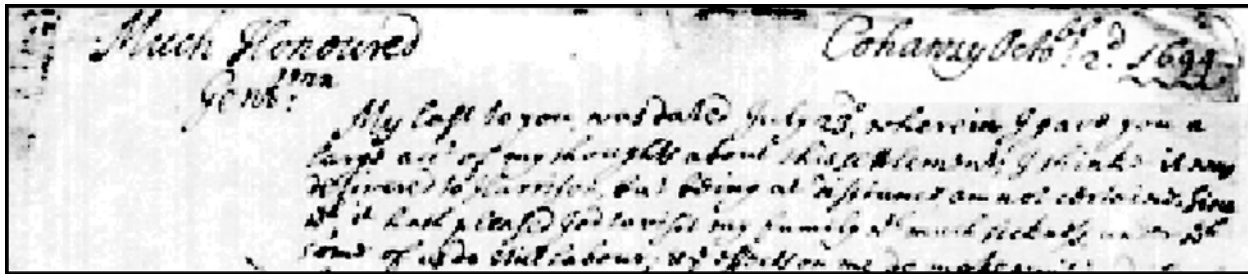 Much Honoured
Cohansy Octob: 2d. 1694
Gentmn
My last to you was dated July 23d, wherein I gave you a
large acct of my thoughts about this settlement, I think it was
delivered to Harrison, but being at distance am not certaine; Since
wch it hath pleased God to visit my family wth much sickness, under wch
some of us do still labour,